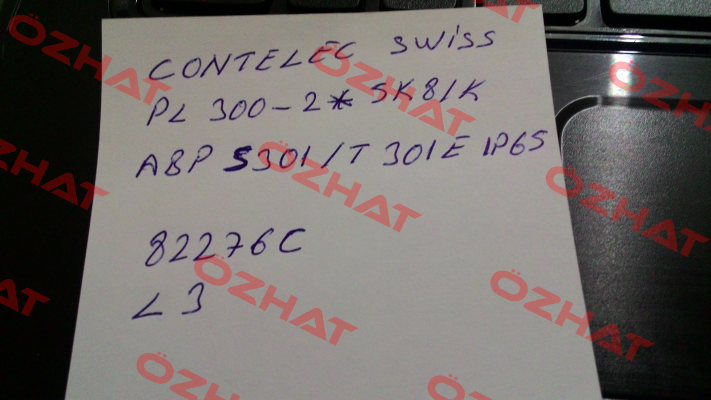 CONTELEC SWiSS
PL 300-2* 5K8/K
ABP S301/T 301E IP65
82276C
L3
ÖZHAT
ÖZHAT
ÖZHAT
ÖZHAT
ÖZHAT
ÖZHAT
ÖZHAT
ÖZHAT
ÖZHAT
ÖZHAT
ÖZHAT